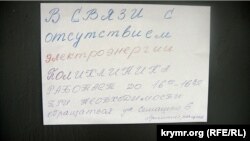 В СВЯЗИ С
отсутствием
электроэнергии
ПОЛИКЛИНИКА
РАБОТАЕТ ДО
ПРИ НЕОБХОДИМОСТИ
обращаться ул
krymr.org (RFE/RL)